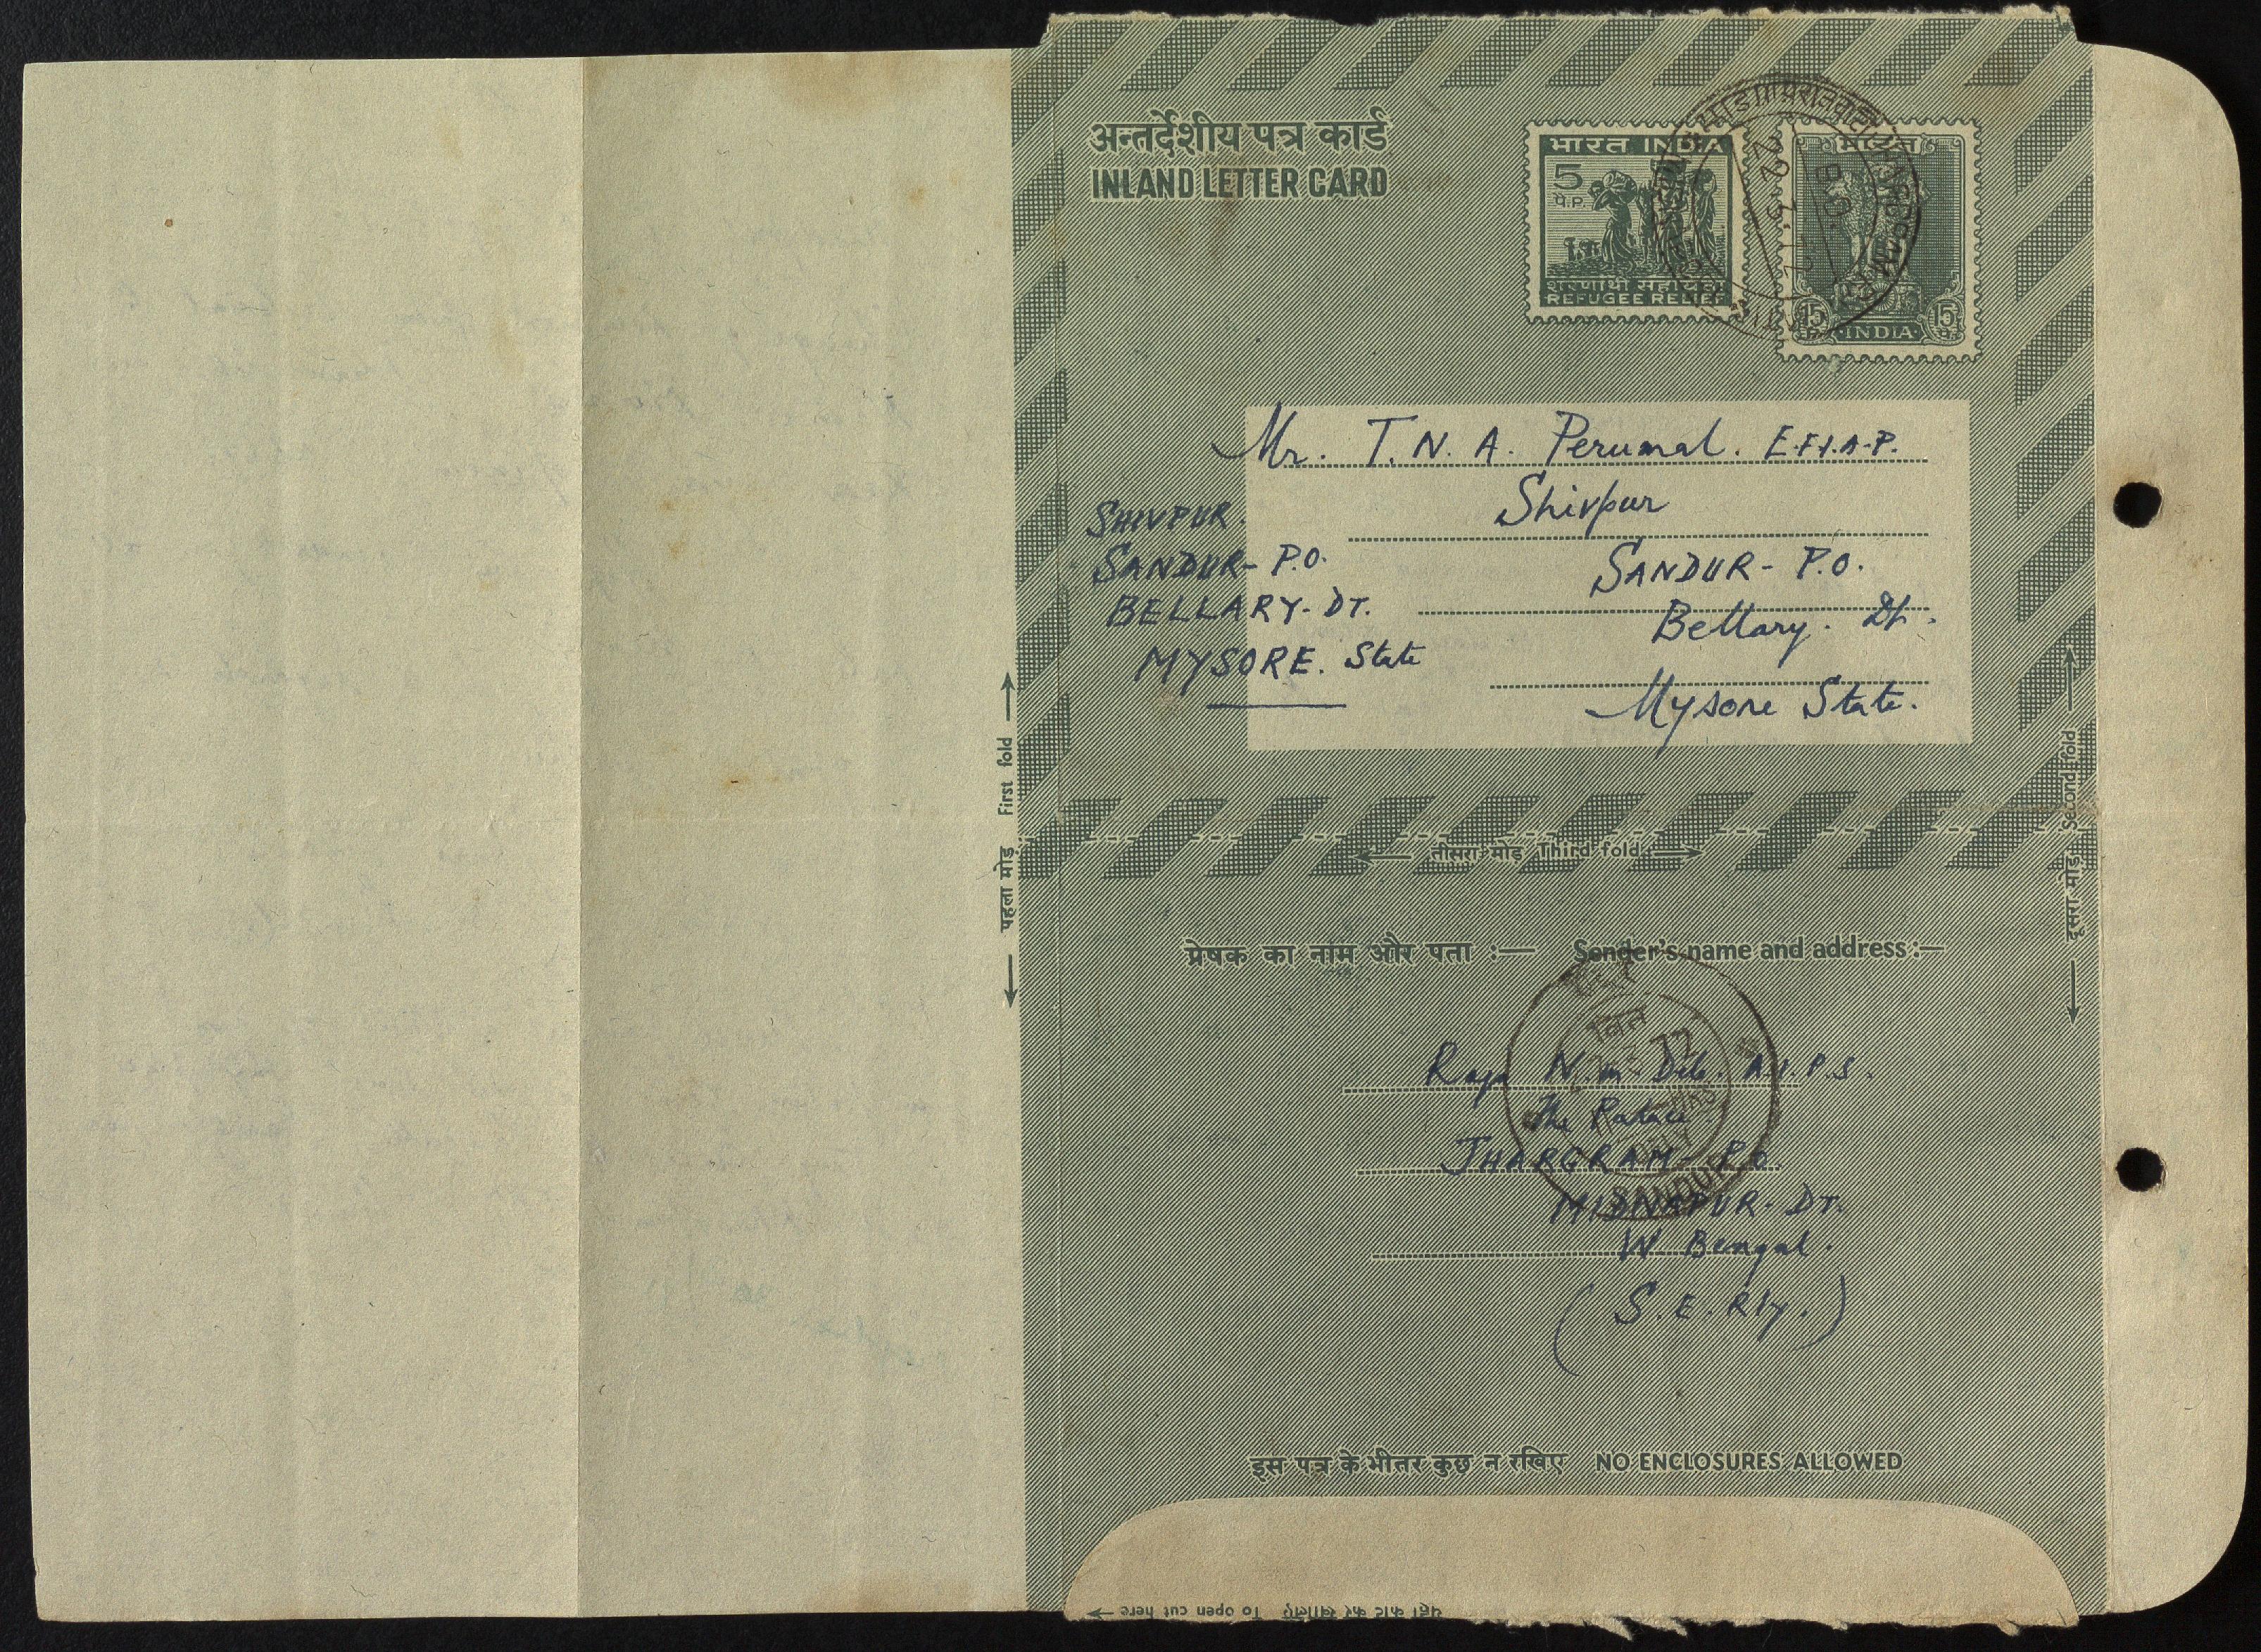 अन्तर्देशीय पत्र कार्ड
INLAND LETTER CARD
भारत INDIA
5
P.प.
शरणार्थी सहायता
REFUGEE RELIEF
भारत
15 15
INDIA
22 3.72
Mr. T. N. A. Perumal. E.F.I.A.P.
Shivpur
SANDUR - P.O.
Bellary. Dt.
Mysore State.
SHIVPUR.
SANDUR - P.O.
BELLARY - DT.
MYSORE. State
पहला मोड़ First fold
तीसरा मोड़ Third fold
दूसरा मोड़ Second fold
प्रेषक का नाम और पता :— Sender's name and address :—
Raja N. m. Deb. A.I.P.S.
The Palace
JHARGRAM - P.O.
MIDNAPUR - DT.
W. Bengal.
(S. E. Rly.)
72
SANDUR
इस पत्र के भीतर कुछ न रखिए NO ENCLOSURES ALLOWED
यहां काट कर खोलिए To open cut here